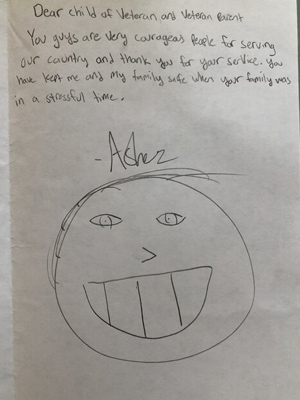 Dear child of Veteran and Veteran Parent
You guys are very courageous people for serving
our country and thank you for your service. You
have kept me and my family safe when your family was
in a stressful time.
-Asher